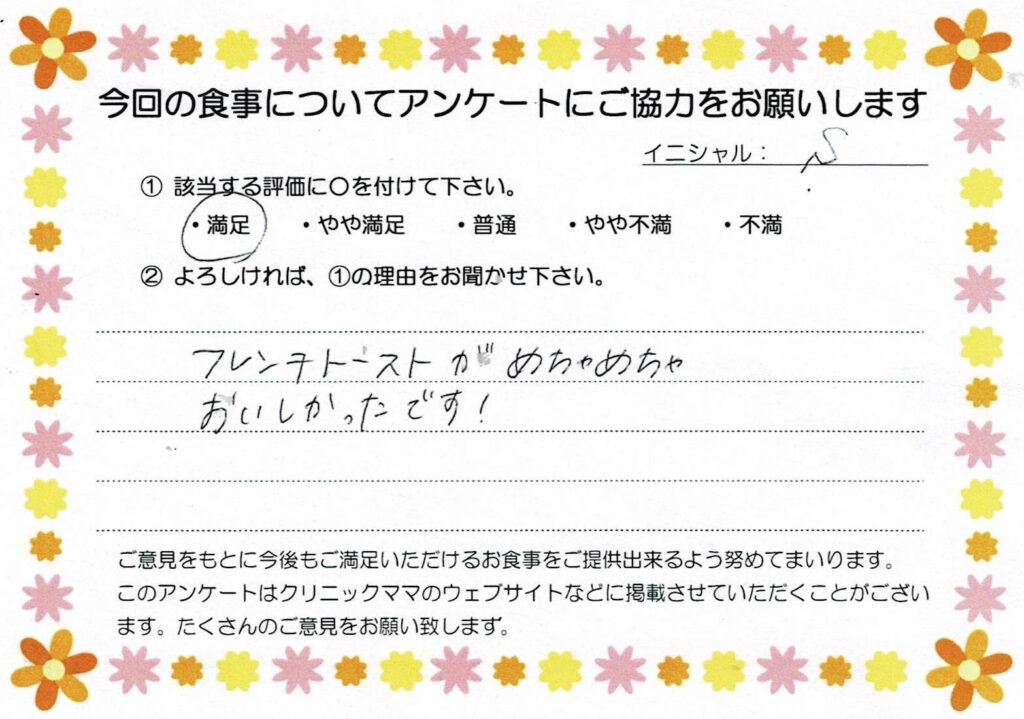 今回の食事についてアンケートにご協力をお願いします
イニシャル： S
① 該当する評価に〇を付けて下さい。
・満足　・やや満足　・普通　・やや不満　・不満
② よろしければ、①の理由をお聞かせ下さい。
フレンチトーストがめちゃめちゃ
おいしかったです！
ご意見をもとに今後もご満足いただけるお食事をご提供出来るよう努めてまいります。
このアンケートはクリニックママのウェブサイトなどに掲載させていただくことがござい
ます。たくさんのご意見をお願い致します。